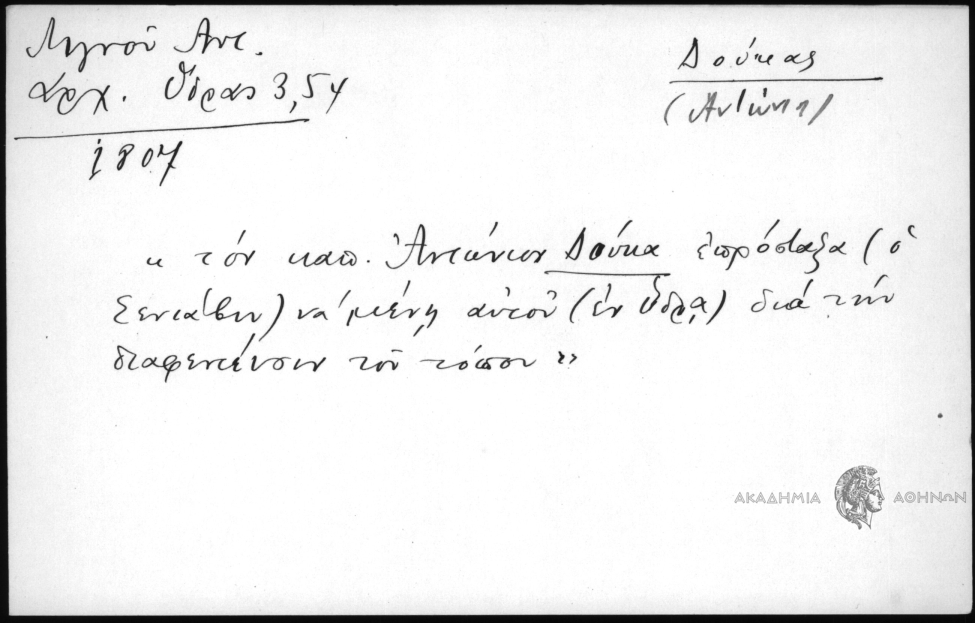 Λιγνοῦ Ἀντ.
Ἀρχ. Ὕδρας 3,54
1807
Δούκας
(Ἀντώνη)
« τόν καπ. Ἀντώνιον Δούκα ἐπρόσταξα (ὁ
Σενιάβιν) νά μένῃ αὐτοῦ (ἐν Ὕδρᾳ) διά τήν
διαφεντευσιν τοῦ τόπου »
ΑΚΑΔΗΜΙΑ ΑΘΗΝΩΝ